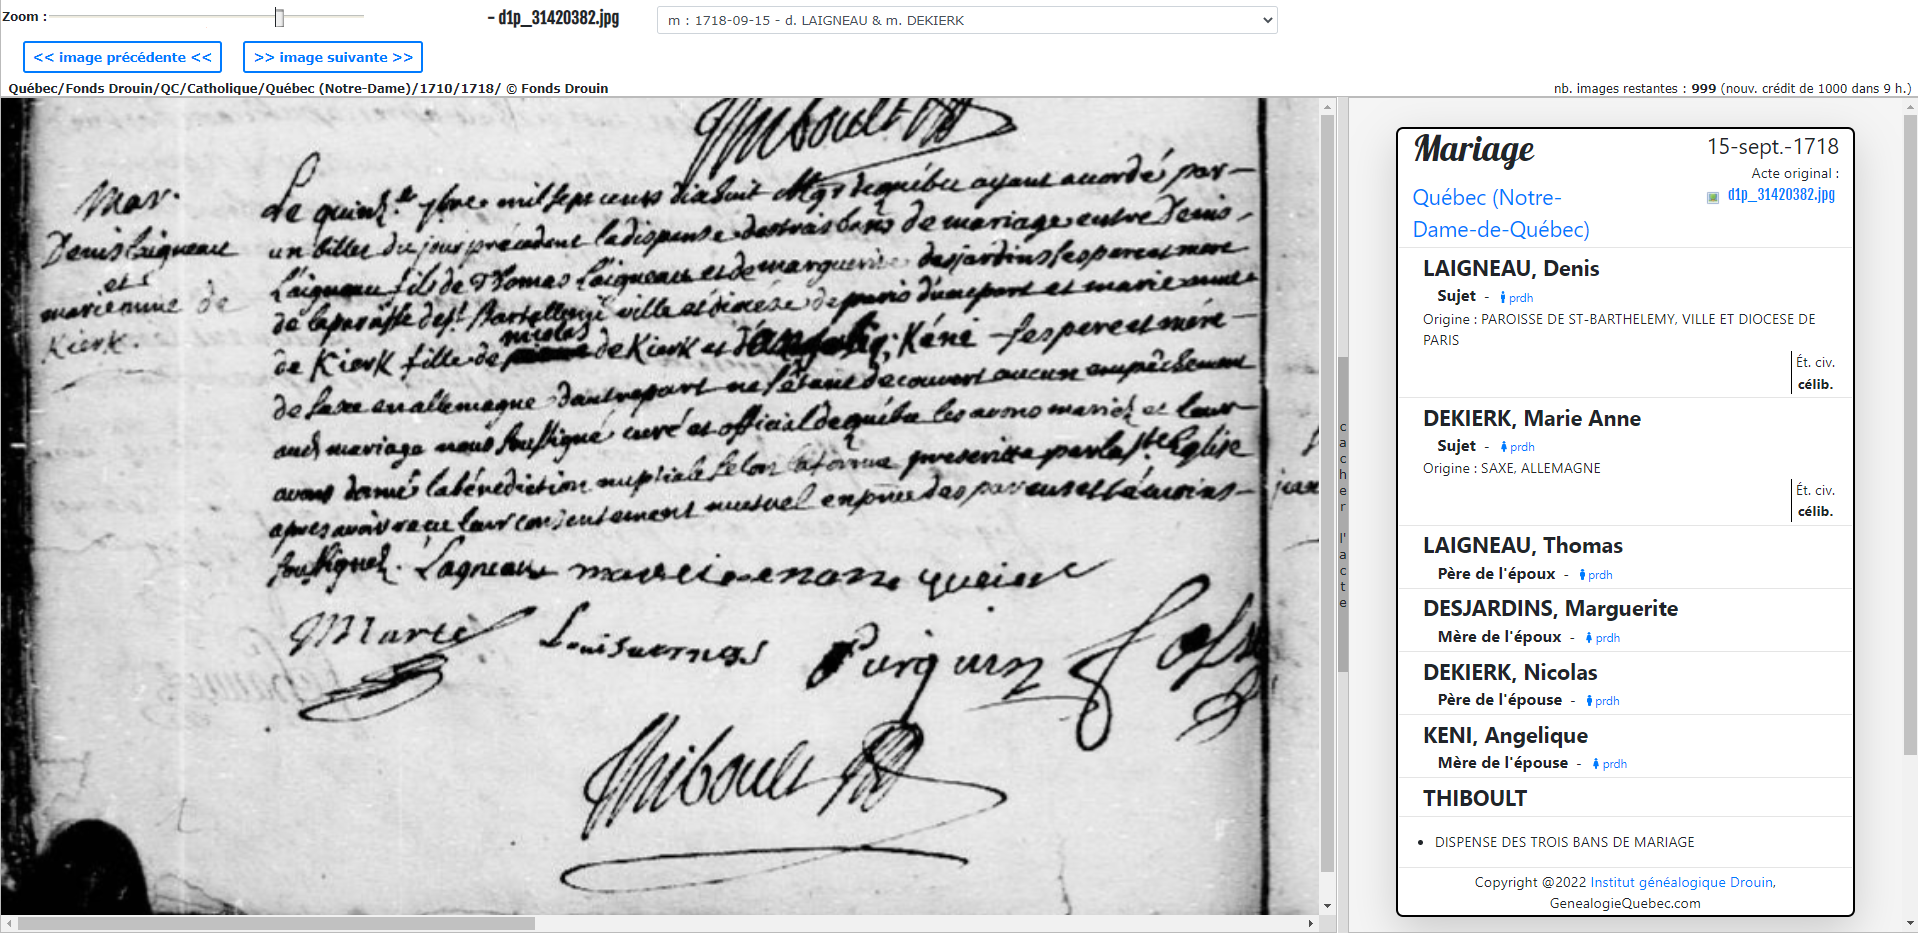 Zoom :
– d1p_31420382.jpg
m : 1718-09-15 - d. LAIGNEAU & m. DEKIERK
<< image précédente <<
>> image suivante >>
Québec/Fonds Drouin/QC/Catholique/Québec (Notre-Dame)/1710/1718/ © Fonds Drouin
nb. images restantes : 999 (nouv. crédit de 1000 dans 9 h.)
Thiboult
Mar.
Denis Laigneau
et
marie anne de
Kierk.
Le quinze 7bre mil sept cents dix huit Mgr de quebec ayant accordé par
un billet du jour précédent la dispense des trois bans de mariage entre Denis
Laigneau fils de Thomas Laigneau et de marguerite desjardins ses pere et mere
de la paroisse de st Barthellemi ville et diocése de paris d'une part et marie anne
nicolas
de Kierk fille de de Kierk et d'angeliq; Kéni ses pere et mére
de saxe en allemagne d'autre part ne s'étant découvert aucun empêchement
aud mariage nous soussigné curé et official de québec les avons mariez et leur
avons donné la bénédiction nuptiale selon la forme prescritte par la ste Eglise
apres avoir recu leur consentement mutuel en pnce des parens et témoins
soussignez. Lagneau marie anane queierc
Marie Louis Turquin foss
Thiboult
cacher l'acte
Mariage
15-sept.-1718
Acte original :
d1p_31420382.jpg
Québec (Notre-
Dame-de-Québec)
LAIGNEAU, Denis
Sujet - prdh
Origine : PAROISSE DE ST-BARTHELEMY, VILLE ET DIOCESE DE
PARIS
Ét. civ.
célib.
DEKIERK, Marie Anne
Sujet - prdh
Origine : SAXE, ALLEMAGNE
Ét. civ.
célib.
LAIGNEAU, Thomas
Père de l'époux - prdh
DESJARDINS, Marguerite
Mère de l'époux - prdh
DEKIERK, Nicolas
Père de l'épouse - prdh
KENI, Angelique
Mère de l'épouse - prdh
THIBOULT
• DISPENSE DES TROIS BANS DE MARIAGE
Copyright @2022 Institut généalogique Drouin,
GenealogieQuebec.com